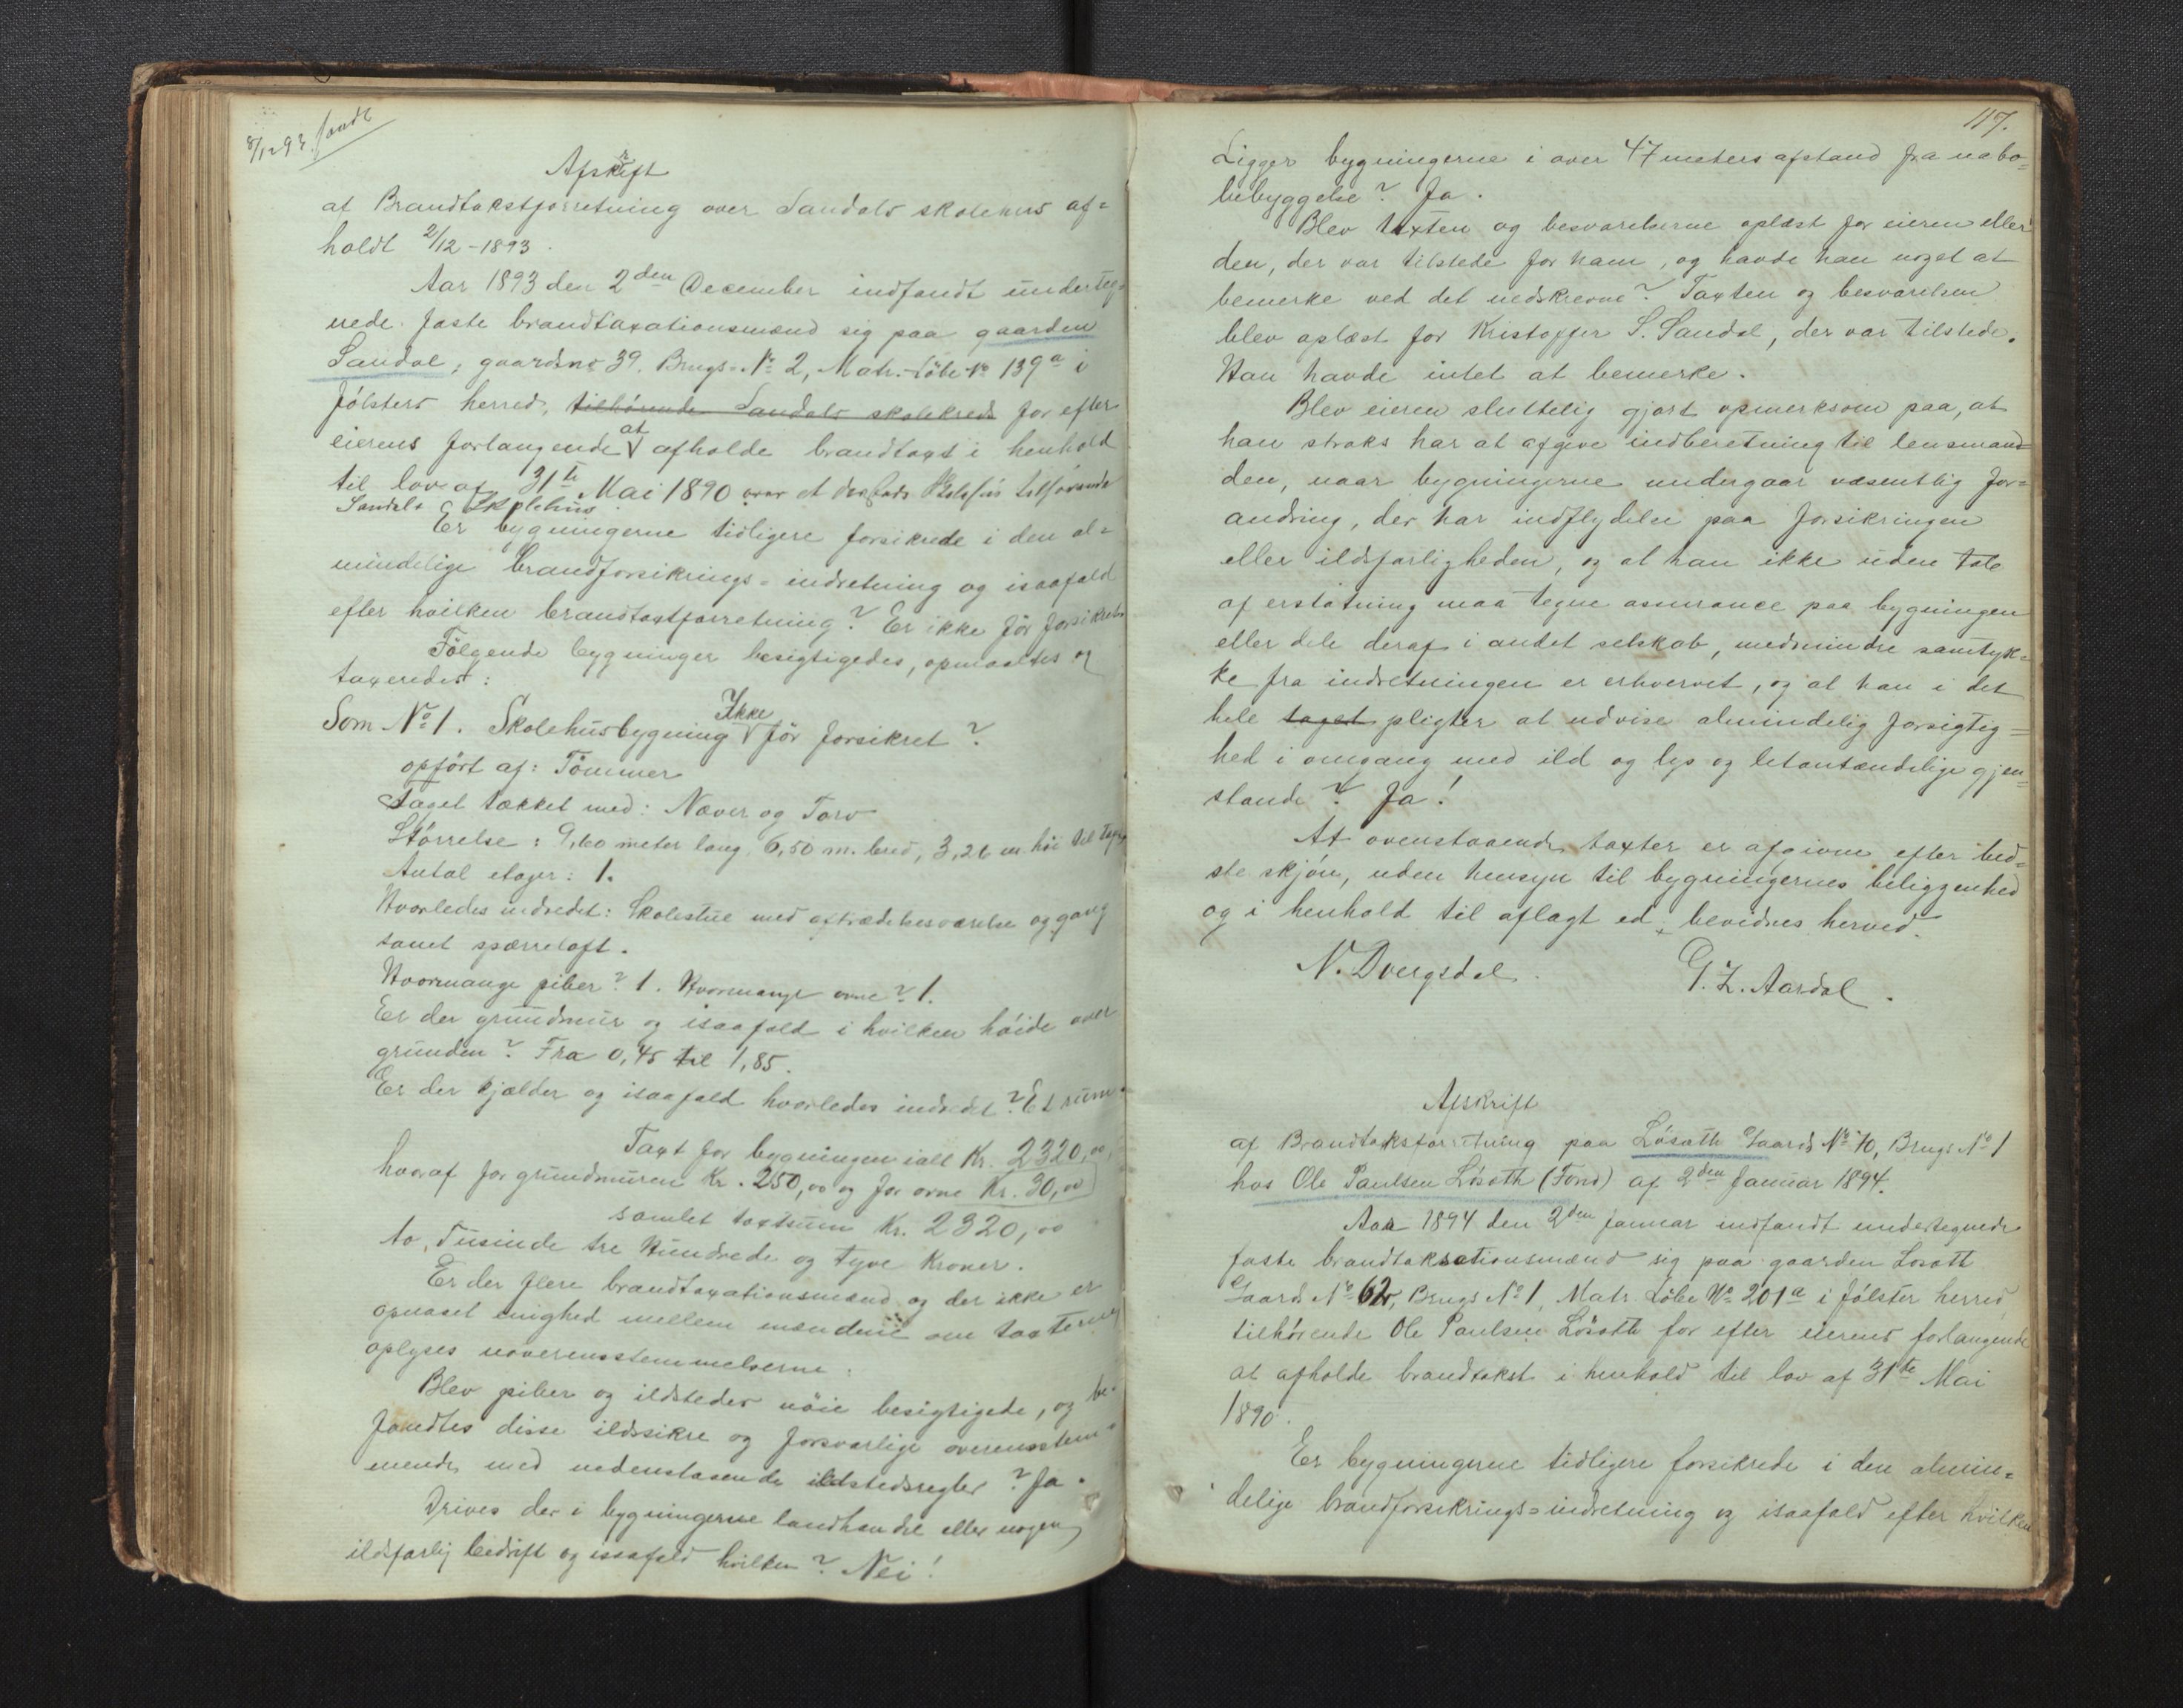 8/12 93. sandt
Afskrift
af Brandtakstforretning over Sandals skolehus af=
holdt 2/12-1893.
Aar 1893 den 2den December indfandt underteg=
nede faste brandtaxationsmænd sig paa gaarden
Sandal, gaardsno 39. Brugs-No 2, Matr.-Løbe No 139a i
Jølsters herred, tilhørende Sandals skolekreds for efter
eierens forlangende at afholde brandtaxt i henhold
til lov af 31te Mai 1890 over et derværende Skolehus tilhørende
Sandals Skolehus.
Er bygningerne tidligere forsikrede i den al=
mindelige brandforsikrings-indretning og isaafald
efter hvilken brandtaxtforretning? Er ikke før forsikret
Følgende bygninger besigtigedes, opmaaltes og
taxeredes:
Som No 1. Skolehusbygning Ikke før forsikret?
opført af: Tømmer
Taget tækket med: Næver og Torv
Størrelse: 9,60 meter lang, 6,50 m. bred, 3,26 m høi til taget
Antal etager: 1.
Hvorledes indredet: Skolestue med aftrædelsesværelse og gang
samt spærreloft.
Hvormange piber? 1. Hvormange ovne? 1.
Er der grundmur og isaafald i hvilken høide over
grunden? Fra 0,45 til 1,85.
Er der kjælder og isaafald hvorledes indredet? Et rum.
Taxt for bygningen ialt Kr. 2320,00,
hvoraf for grundmuren Kr. 250,00 og for ovne Kr. 30,00
samlet taxtsum Kr. 2320,00
to, Tusinde tre Hundrede og tyve Kroner.
Er der flere brandtaxationsmænd og der ikke er
opnaaet enighed mellem mændene om taxterne
oplyses uoverensstemmelserne:
Blev piber og ildsteder nøie besigtigede, og be=
fandtes disse ildssikre og forsvarlige overensstem=
mende med nedenstaaende ildstedsregler? Ja.
Drives der i bygningerne landhandel eller nogen
ildsfarlig bedrift og isaafald hvilken? Nei!
117.
Ligger bygningerne i over 47 meters afstand fra nabo=
bebyggelse? Ja.
Blev taxten og besvarelserne oplæst for eieren eller
den, der var tilstede for ham, og havde han noget at
bemerke ved det nedskrevne? Taxten og besvarelsen
blev oplæst for Kristoffer S. Sandal, der var tilstede.
Han havde intet at bemerke.
Blev eieren sluttelig gjort opmerksom paa, at
han straks har at afgive indberetning til lensmand=
den, naar bygningerne undergaar væsentlig for=
andring, der har indflydelse paa forsikringen
eller ildsfarligheden, og at han ikke uden tab
af erstatning maa tegne assurance paa bygningen
eller dele deraf i andet selskab, medmindre samtyk=
ke fra indretningen er erhvervet, og at han i det
hele taget pligter at udvise almindelig forsigtig=
hed i omgang med ild og lys og letantændelige gjen=
stande? Ja!
At ovenstaaende taxter er afgivne efter bed=
ste skjøn, uden hensyn til bygningernes beliggenhed
og i henhold til aflagt ed, bevidnes herved.
N. Dvergsdal. G. Z. Aardal.
Afskrift
af Brandtakstforretning paa Løsæth Gaards No 70, Brugs No 1
hos Ole Paulsen Løsæth (Fond) af 2den Januar 1894.
Aar 1894 den 2den Januar indfandt undertegnede
faste brandtaksationsmænd sig paa gaarden Løsæth
Gaards No 62, Brugs No 1, Matr. Løbe No 201a i Jølster herred
tilhørende Ole Paulsen Løsæth for efter eierens forlangende
at afholde brandtakst i henhold til lov af 31te Mai
1890.
Er bygningerne tidligere forsikrede i den almin=
delige brandforsikrings=indretning og isaafald efter hvilken